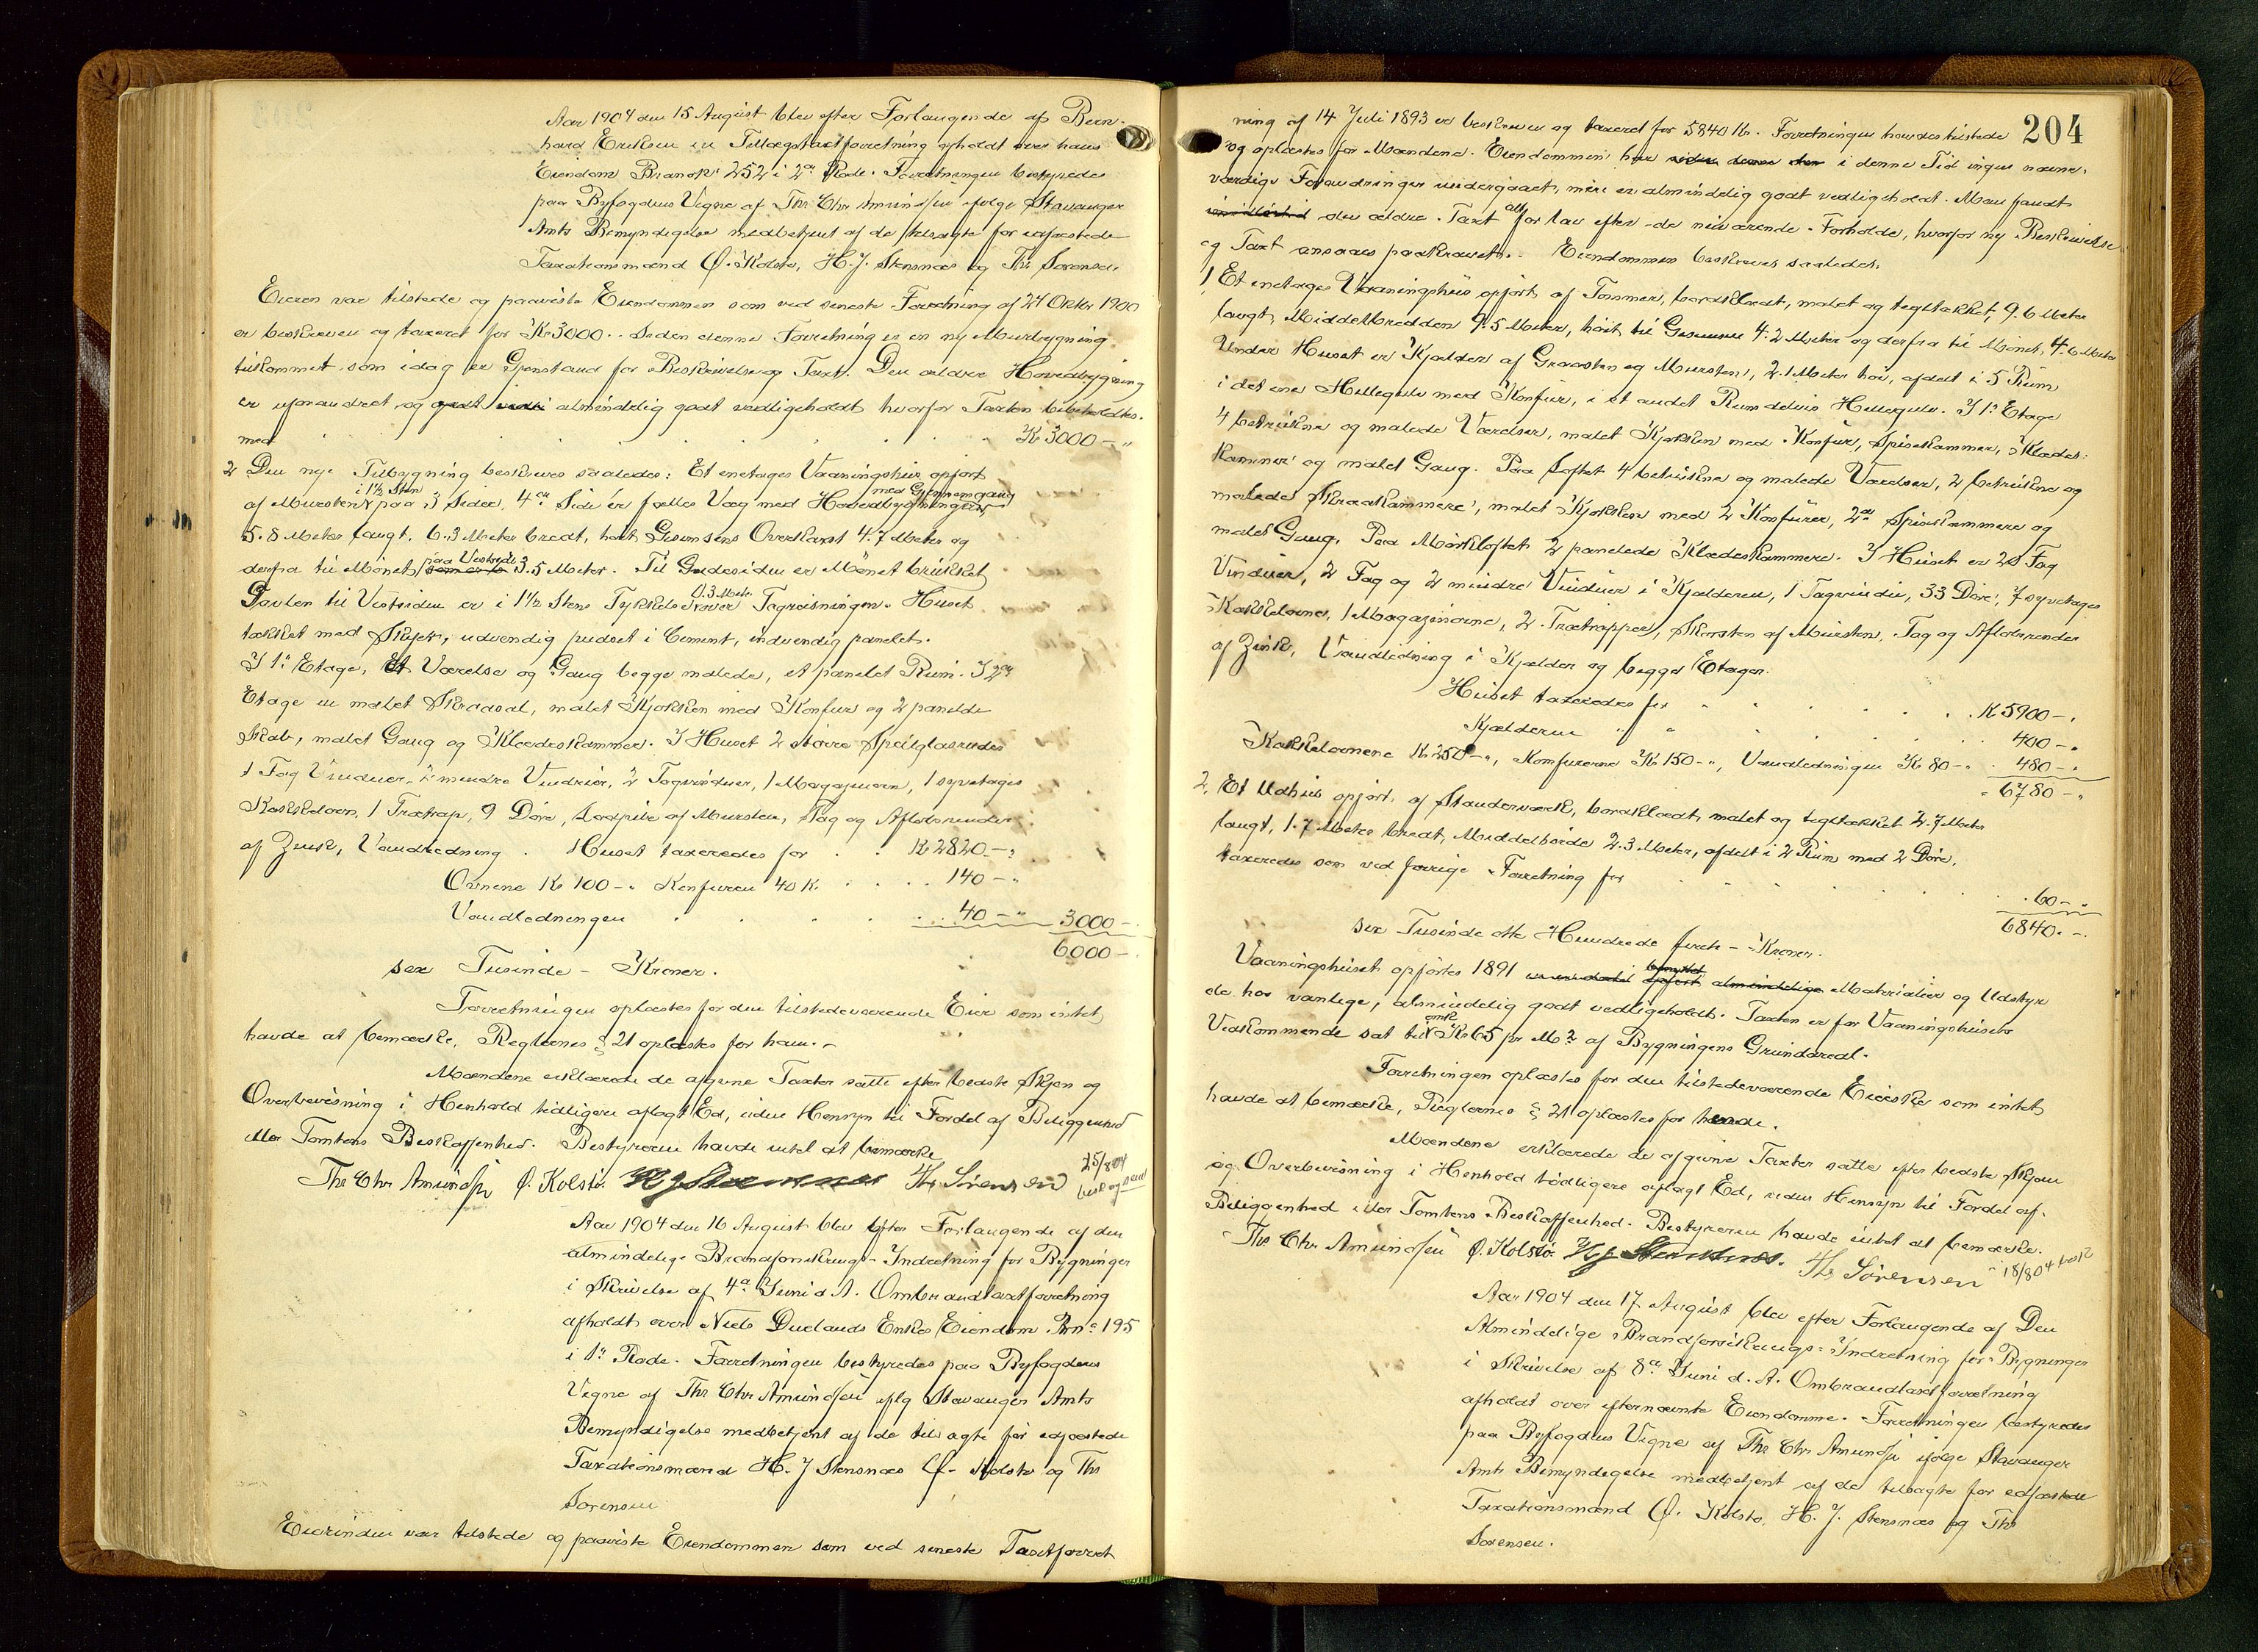 Aar 1904 den 15 August blev efter Forlangende af Bern-
hard Eriksen en Tillægstaxtforretning afholdt over hans
Eiendom Brandnº 252 i 2den Rode. Forretningen bestyredes
paa Byfogdens Vegne af Ths Chr Amundsen ifølge Stavanger
Amts Bemyndigelse medbetjent af de tilsagte før edfæstede
Taxationsmænd O. Kolstø, H. J. Stensnæs og Ths Sørensen
Eieren var tilstede og paaviste Eiendommen som ved seneste Forretning af 24 Oktbr 1900
er beskreven og taxeret for Kr 3000.- Siden denne Forretning er en ny Murbygning
tilkommet, som idag er Gjenstand for Beskrivelse og Taxt. Den ældre Hovedbygning
er uforandret og godt vedli almindelig godt vedligeholdt hvorfor Taxten bibeholdes
med . . . . . . K 3000-"
2 Den nye Tilbygning beskrives saaledes: Et enetages Vaaningshus opført
af Mursten i 1½ Sten paa 3 Sider, 4de Side er fælles Væg med Hovedbygningen med Gjennemgang
5.8 Meter langt, 6.3 Meter bredt, høit Gesimsens Overkant 4.7 Meter og
derfra til Mønet paa Vestside 3.5 Meter. Til Gadesiden er Mønet brækket
Gavlen til Vestsiden er i 1½ Stens Tykkelse 0.3 Meter over Tagreisningen. Huset
tækket med Skifer, udvendig pudset i Cement, indvendig panelet.
I 1ste Etage, Et Værelse og Gang begge malede, et panelet Rum. I 2den
Etage en malet Skraasal, malet Kjøkken med Komfur og 2 panelede
Skab, malet Gang og Klædeskammer. I Huset 2 større Speilglasruder
1 Fag Vinduer, 2 mindre Vinduer, 2 Tagvinduer, 1 Magazinovn, 1 syvetages
Kakkelovn, 1 Trætrap, 9 Døre, Lodpibe af Mursten, Tag og Afløbsrender
af Zink, Vandledning . Huset taxeredes for . . K 2820.-"
Ovnene Kr 100-" Komfuren 40 K. . . . 140-"
Vandledningen . . . . 40-" 3000-
6000-
sex Tusinde - Kroner.
Forretningen oplæstes for den tilstedeværende Eier som intet
havde at bemærke. Reglernes § 21 oplæstes for ham.-
Mændene erklærede de afgivne Taxter satte efter bedste Skjøn og
Overbevisning i Henhold tidligere aflagt Ed, uden Hensyn til Fordel af Beliggenhed
eller Tomtens Beskaffenhed. Bestyreren havde intet at bemærke
Ths Chr Amundsen O. Kolstø. H J Stensnæs Ths Sørensen 25/8 04
Aar 1904 den 16 August blev efter Forlangende af den
almindelige Brandforsikrings-Indretning for Bygninger
i Skrivelse af 4de Juni d A. Ombrandtaxtforretning
afholdt over Niels Duelands Enkes Eiendom Brnº 195
i 1ste Rode. Forretningen bestyredes paa Byfogdens
Vegne af Ths Chr Amundsen iflg Stavanger Amts
Bemyndigelse medbetjent af de tilsagte før edfæstede
Taxationsmænd H. J Stensnæs O. Kolstø og Ths
Sørensen
Eierinden var tilstede og paaviste Eiendommen som ved seneste Taxtforret
204
ning af 14 Juli 1893 er beskreven og taxeret for 5840 Kr. Forretningen havdes tilstede
og oplæstes for Mændene. Eiendommen har siden denne den i denne Tid ingen nævne-
værdige Forandringer undergaaet, men er almindelig godt vedligeholdt. Man fandt
imidlertid den ældre Taxt alt for lav efter de nuværende Forholde, hvorfor ny Beskrivelse
og Taxt ansaaes paakrævet. Eiendommen beskrives saaledes.
1, Et enetages Vaaningshus opført af Tømmer, bordklædt, malet og tegltækket, 9.6 Meter
langt, Middelbredden 9.5 Meter, høit til Gesimsen 4.2 Meter og derfra til Mønet, 4.6 Meter
Under Huset er Kjælder af Graasten og Mursten, 2.1 Meter høi, afdelt i 5 Rum
i det ene Hellegulv med Komfur, i et andet Rum delvis Hellegulv. I 1ste Etage
4 betrukne og malede Værelser, malet Kjøkken med Komfur, Spisekammer, Klædes-
kammer og malet Gang. Paa Loftet 4 betrukne og malede Værelser, 2 betrukne og
malede Skraakammere, malet Kjøkken med 2 Komfurer, 2de Spisekammere og
malet Gang. Paa Mørkloftet 2 panelede Klædeskammere. I Huset er 20 Fag
Vinduer, 2 Fag og 2 mindre Vinduer i Kjælderen, 1 Tagvindu, 33 Døre, 7 syvetages
Kakkelovne, 1 Magazinovne, 2 Trætrapper, Skorsten af Mursten, Tag og Afløbsrender
af Zink, Vandledning i Kjælder og begge Etager.
Huset taxeredes for . . . . . K 5900-"
Kjælderen " " . . . . 400-"
Kakkelovnene K 250-", Komfurerne K 150-", Vandledningen K 80-" . 480-"
6780-"
2, Et Udhus opført af Standerværk, bordklædt, malet og tegltækket 2.7 Meter
langt, 1.7 Meter bredt, Middelhøide 2.3 Meter, afdelt i 2 Rum med 2 Døre,
taxeredes som ved forrige Forretning for . . . . . 60-"
6840.-
sex Tusinde otte Hundrede firti - Kroner.
Vaaningshuset opførtes 1891 benyttet opført almindelige Materialier og Udstyr
de hos vanlige, almindelig godt vedligeholdt. Taxten er for Vaaningshusets
Vedkommende sat til omtr K 65 pr M² af Bygningens Grundareal.
Forretningen oplæstes for den tilstedeværende Eierske som intet
havde at bemærke, Reglernes § 21 oplæstes for hende.
Mændene erklærede de afgivne Taxter satte efter bedste Skjøn
og Overbevisning i Henhold tidligere aflagt Ed, uden Hensyn til Fordel af
Beliggenhed eller Tomtens Beskaffenhed. Bestyreren havde intet at bemærke.
Ths Chr Amundsen O. Kolstø H J Stensnæs. Ths Sørensen 18/8 04
Aar 1904 den 17 August blev efter Forlangende af Den
Almindelige Brandforsikrings-Indretning for Bygninger
i Skrivelse af 8de Juni d. A. Ombrandtaxtforretning
afholdt over efternævnte Eiendomme. Forretningen bestyredes
paa Byfogdens Vegne af Ths Chr Amundsen ifølge Stavanger
Amts Bemyndigelse medbetjent af de tilsagte før edfæstede
Taxationsmænd O. Kolstø, H. J. Stensnæs og Ths
Sørensen.